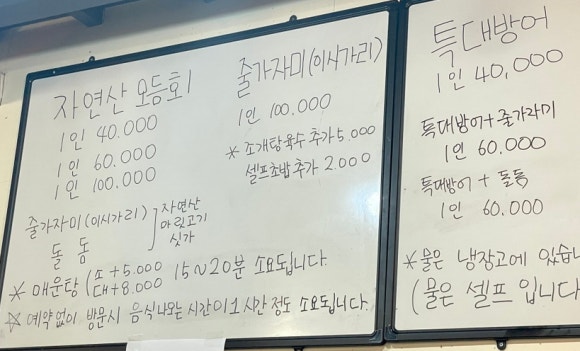 자연산 모듬회
1인 40.000
1인 60.000
1인 100.000
줄가자미(이시가리)
돌돔
자연산
마릿고기
싯가
* 매운탕 (소 +5.000
대 +8.000
15~20분 소요됩니다.
☆ 예약없이 방문시 음식나오는 시간이 1시간정도 소요됩니다.
줄가자미(이시가리)
1인 100.000
* 조개탕육수추가 5.000
셀프초밥추가 2.000
특대방어
1인 40,000
특대방어+줄가자미
1인 60.000
특대방어 + 돌돔
1인 60.000
* 물은 냉장고에 있습니
(물은 셀프 입니다